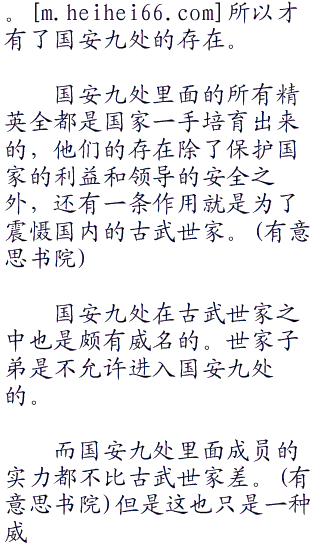 。[m.heihei66.com]所以才
有了国安九处的存在。
国安九处里面的所有精
英全都是国家一手培育出来
的，他们的存在除了保护国
家的利益和领导的安全之
外，还有一条作用就是为了
震慑国内的古武世家。(有意
思书院)
国安九处在古武世家之
中也是颇有威名的。世家子
弟是不允许进入国安九处
的。
而国安九处里面成员的
实力都不比古武世家差。(有
意思书院)但是这也只是一种
威